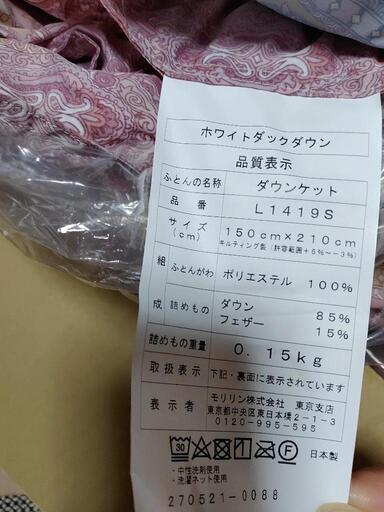 ホワイトダックダウン
品質表示
ふとんの名称 ダウンケット
品番 L1419S
サイズ(cm) 150cm×210cm
キルティング製(許容範囲+5%~-3%)
組成 ふとんがわ ポリエステル 100%
詰めもの ダウン 85%
フェザー 15%
詰めもの重量 0.15kg
取扱表示 下記・裏面に表示されています
表示者 モリリン株式会社 東京支店
東京都中央区東日本橋2-1-3
0120-995-595
30 F 日本製
・中性洗剤使用
・洗濯ネット使用
270521-0088